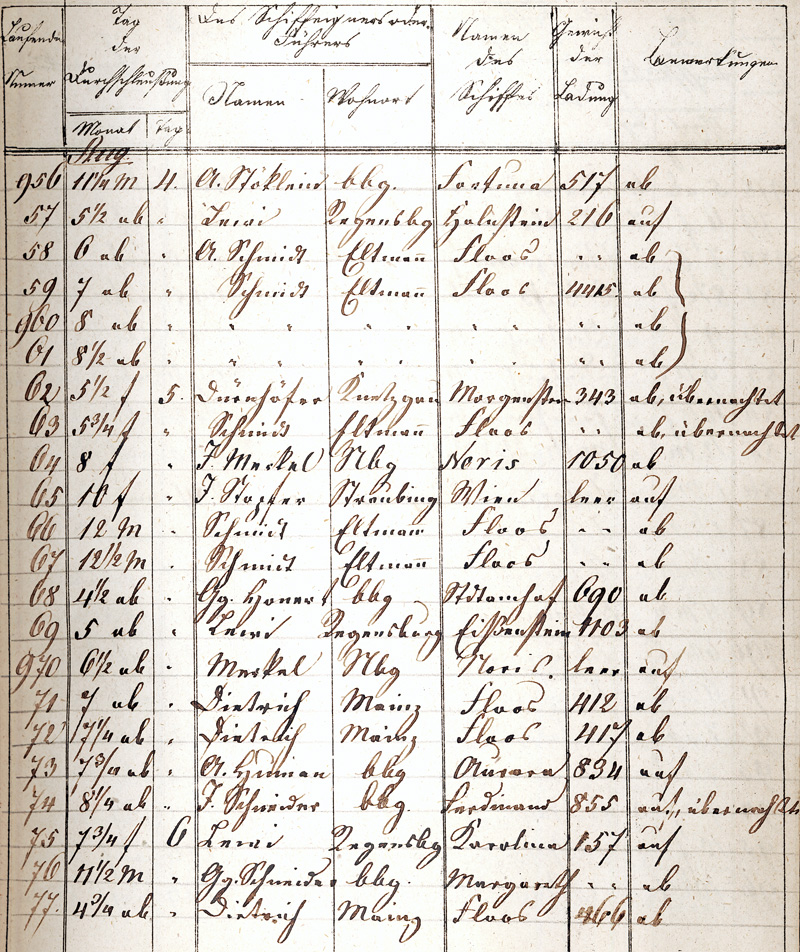 Laufende Numer | Tag der Durchschleußung | Des Schiffeigners oder Führers | Namen des Schiffes | Gewicht der Ladung | Bemerkungen
Monat | Tag | Namen | Wohnort
Aug.
956 11¼ M 4. A. Stöklein bbg. Fortuna 517 ab
57 5½ ab " Lewi Regensbg Holnstein 216 auf
58 6 ab " A. Schmidt Eltmann Floos " " ab
59 7 ab " Schmidt Eltmann Floos 4415 ab
960 8 ab " " " " " " " " " ab
61 8½ ab " " " " " " " ab
62 5½ f 5. Dürnhöfer Knetzgau Morgenstern 343 ab, übernachtet
63 5¾ f " Schmidt Eltmann Floos " " ab, übernachtet
64 8 f " J. Merkel Nbg Noris 1050 ab
65 10 f " J. Stapfer Straubing Wien leer auf
66 12 M " Schmidt Eltmann Floos " " ab
67 12½ M " Schmidt Eltmann Floos " " ab
68 4½ ab " Gg. bbg Stdtamhof 690 ab
69 5 ab " Lewi Regensburg 1103 ab
970 6½ ab " Merkel Nbg Noris. leer auf
71 7 ab " Dietrich Mainz Floos 412 ab
72 7¼ ab " Dietrich Mainz Floos 417 ab
73 7¾ ab " A. bbg Aurora 834 auf
74 8¼ ab " J. Schneider bbg. Ferdinand 855 auf, übernachtet
75 7¾ f 6 Lewi Regensbg Karolina 157 auf
76 11½ M " Gg. Schneider bbg. Margareth " " ab
77. 4¾ ab " Dietrich Mainz Floos 466 ab